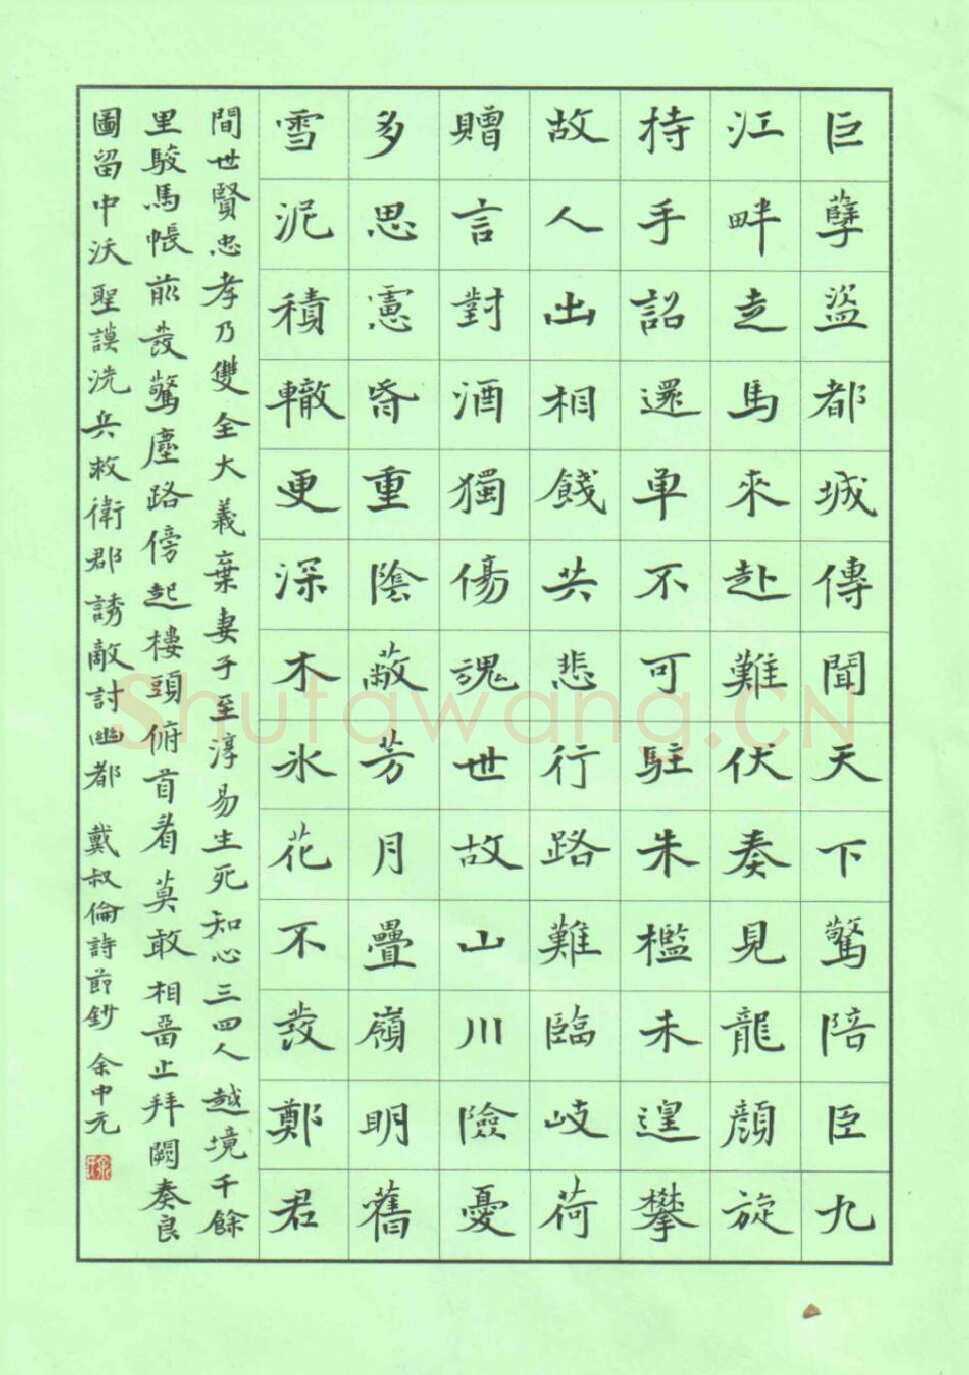 巨孽盜都城傳聞天下驚陪臣九
江畔走馬來赴難伏奏見龍顔旋
持手詔還单不可駐朱檻未遑攀
故人出相餞共悲行路難臨岐荷
贈言對酒獨傷魂世故山川險憂
多思慮昏重陰蔽芳月疊嶺明舊
雪泥積轍更深木氷花不發鄭君
間世賢忠孝乃雙全大義棄妻子至淳易生死知心三四人越境千餘
里駿馬帳前發驚塵路傍起樓頭俯首看莫敢相啚止拜闕奏良
圖留中沃聖謨洗兵救衛郡誘敵討幽都 戴叔倫詩節鈔 余中元
Shufawang.CN